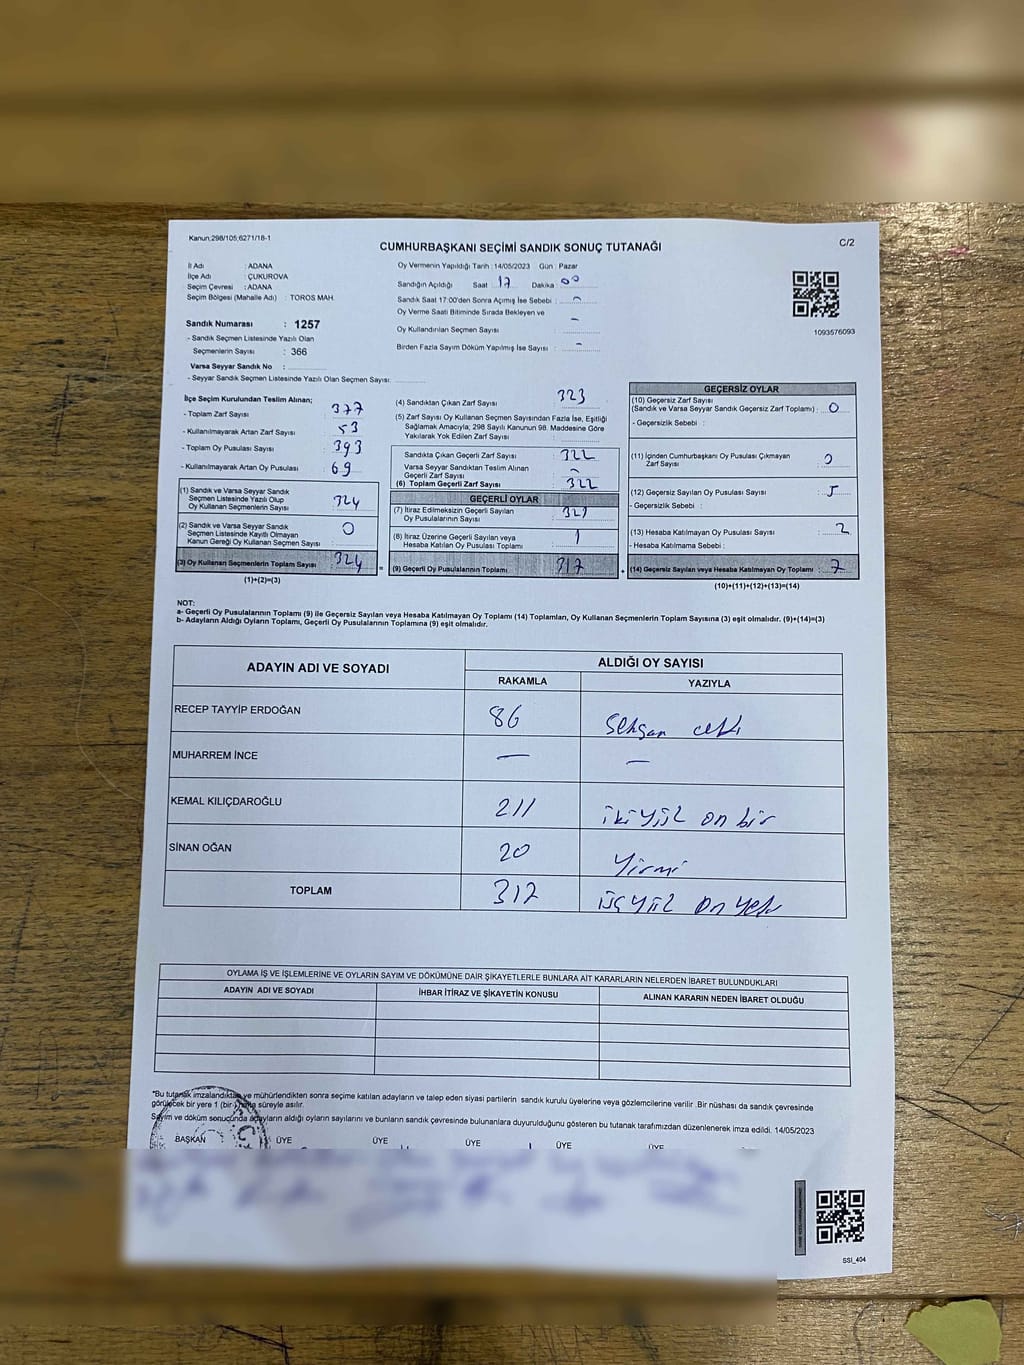 Kanun:298/105;6271/18-1
CUMHURBAŞKANI SEÇİMİ SANDIK SONUÇ TUTANAĞI
C/2
İl Adı : ADANA
İlçe Adı : ÇUKUROVA
Seçim Çevresi : ADANA
Seçim Bölgesi (Mahalle Adı) : TOROS MAH.
Sandık Numarası : 1257
- Sandık Seçmen Listesinde Yazılı Olan
Seçmenlerin Sayısı : 366
Varsa Seyyar Sandık No :
- Seyyar Sandık Seçmen Listesinde Yazılı Olan Seçmen Sayısı:
Oy Vermenin Yapıldığı Tarih : 14/05/2023 Gün : Pazar
Sandığın Açıldığı Saat 17 Dakika 00
Sandık Saat 17:00'den Sonra Açımış İse Sebebi : -
Oy Verme Saati Bitiminde Sırada Bekleyen ve -
Oy Kullandırılan Seçmen Sayısı :
Birden Fazla Sayım Döküm Yapılmış İse Sayısı : -
1093576093
İlçe Seçim Kurulundan Teslim Alınan;
- Toplam Zarf Sayısı : 377
- Kullanılmayarak Artan Zarf Sayısı : 53
- Toplam Oy Pusulası Sayısı : 393
- Kullanılmayarak Artan Oy Pusulası : 69
(1) Sandık ve Varsa Seyyar Sandık
Seçmen Listesinde Yazılı Olup
Oy Kullanan Seçmenlerin Sayısı 324
(2) Sandık ve Varsa Seyyar Sandık
Seçmen Listesinde Kayıtlı Olmayan
Kanun Gereği Oy Kullanan Seçmen Sayısı 0
(3) Oy Kullanan Seçmenlerin Toplam Sayısı 324
(1)+(2)=(3)
(4) Sandıktan Çıkan Zarf Sayısı : 323
(5) Zarf Sayısı Oy Kullanan Seçmen Sayısından Fazla İse, Eşitliği
Sağlamak Amacıyla; 298 Sayılı Kanunun 98. Maddesine Göre
Yakılarak Yok Edilen Zarf Sayısı :
Sandıkta Çıkan Geçerli Zarf Sayısı : 322
Varsa Seyyar Sandıktan Teslim Alınan
Geçerli Zarf Sayısı : -
(6) Toplam Geçerli Zarf Sayısı : 322
GEÇERLİ OYLAR
(7) İtiraz Edilmeksizin Geçerli Sayılan
Oy Pusulalarının Sayısı :
(8) İtiraz Üzerine Geçerli Sayılan veya
Hesaba Katılan Oy Pusulası Toplamı : 1
(9) Geçerli Oy Pusulalarının Toplamı : 317
GEÇERSİZ OYLAR
(10) Geçersiz Zarf Sayısı
(Sandık ve Varsa Seyyar Sandık Geçersiz Zarf Toplamı) : 0
- Geçersizlik Sebebi :
(11) İçinden Cumhurbaşkanı Oy Pusulası Çıkmayan
Zarf Sayısı : 0
(12) Geçersiz Sayılan Oy Pusulası Sayısı : 5
- Geçersizlik Sebebi :
(13) Hesaba Katılmayan Oy Pusulası Sayısı : 2
- Hesaba Katılmama Sebebi :
(14) Geçersiz Sayılan veya Hesaba Katılmayan Oy Toplamı : 7
(10)+(11)+(12)+(13)=(14)
NOT:
a- Geçerli Oy Pusulalarının Toplamı (9) ile Geçersiz Sayılan veya Hesaba Katılmayan Oy Toplamı (14) Toplamları, Oy Kullanan Seçmenlerin Toplam Sayısına (3) eşit olmalıdır. (9)+(14)=(3)
b- Adayların Aldığı Oyların Toplamı, Geçerli Oy Pusulalarının Toplamına (9) eşit olmalıdır.
ADAYIN ADI VE SOYADI ALDIĞI OY SAYISI
RAKAMLA YAZIYLA
RECEP TAYYİP ERDOĞAN 86 seksan altı
MUHARREM İNCE — —
KEMAL KILIÇDAROĞLU 211 ikiyüz on bir
SİNAN OĞAN 20 Yirmi
TOPLAM 317 üçyüz on yedi
OYLAMA İŞ VE İŞLEMLERİNE VE OYLARIN SAYIM VE DÖKÜMÜNE DAİR ŞİKAYETLERLE BUNLARA AİT KARARLARIN NELERDEN İBARET BULUNDUKLARI
ADAYIN ADI VE SOYADI İHBAR İTİRAZ VE ŞİKAYETİN KONUSU ALINAN KARARIN NEDEN İBARET OLDUĞU
*Bu tutanak imzalandıktan ve mühürlendikten sonra seçime katılan adayların ve talep eden siyasi partilerin sandık kurulu üyelerine veya gözlemcilerine verilir .Bir nüshası da sandık çevresinde
görülecek bir yere 1 (bir) hafta süreyle asılır.
Sayım ve döküm sonucunda adayların aldığı oyların sayılarını ve bunların sandık çevresinde bulunanlara duyurulduğunu gösteren bu tutanak tarafımızdan düzenlenerek imza edildi. 14/05/2023
BAŞKAN ÜYE ÜYE ÜYE ÜYE ÜYE
SSI_404